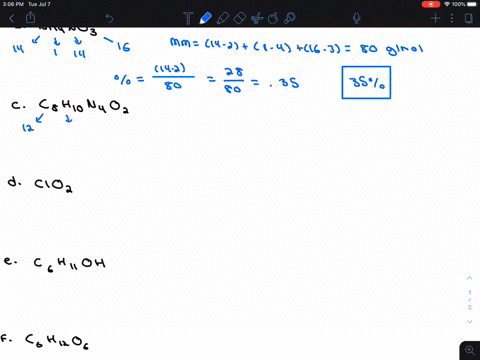 3:06 PM Tue Jul 7 100%
NH4NO3
14 1 14 16 mm = (14·2) + (1·4) + (16·3) = 80 g/mol
% = (14·2)/80 = 28/80 = .35 35%
c. C8H10N4O2
12
d. ClO2
e. C6H11OH
f. C6H12O6